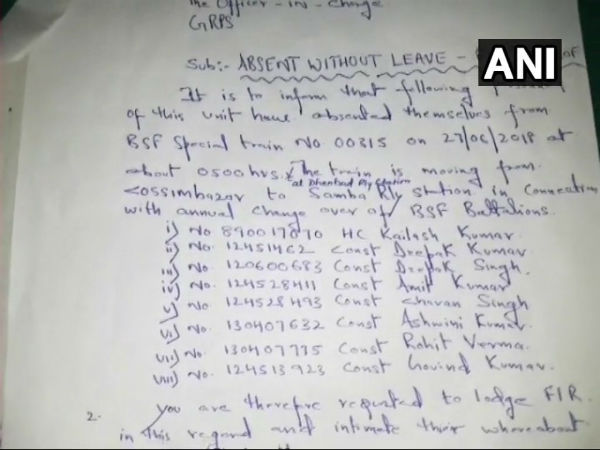 The Officer - in - Charge
GRPS
ANI
Sub:- ABSENT WITHOUT LEAVE - OF
It is to inform that following
of this unit have absented themselves from
BSF Special train No 00315 on 27/06/2018 at
about 0500 hrs. The train is moving from
at Dhanbad Rly Station
Cossimbazar to Samba Rly Station in Connection
with annual change over of BSF Battalions.
i) No 890017070 HC Kailash Kumar.
ii) No. 12451462 Const Deepak Kumar
iii) No. 120600683 Const Deepak Singh.
iv) No. 124528411 Const Amit Kumar
v) No. 124528493 Const Chavan Singh
vi) No. 130407632 Const Ashwini Kumar.
vii) No. 130407775 Const Rohit Verma.
viii) No. 124513923 Const Govind Kumar.
2. You are therefore requested to lodge FIR.
in this regard and intimate their whereabout